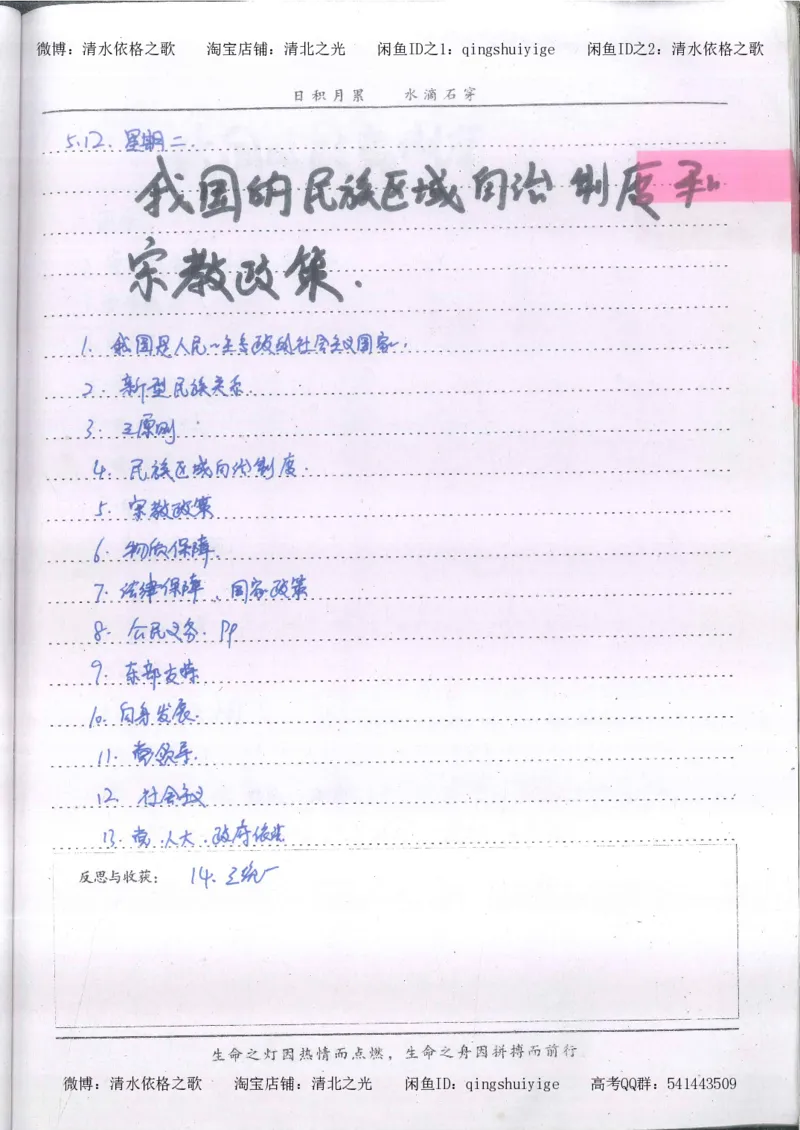 微博：清水依格之歌 淘宝店铺：清北之光 闲鱼ID之1：qingshuiyige 闲鱼ID之2：清水依格之歌
日积月累 水滴石穿
5.12. 星期二.
我国的民族区域自治制度和
宗教政策.
1. 我国是人民~主专政的社会主义国家.
2. 新型民族关系.
3. 三原则
4. 民族区域自治制度.
5. 宗教政策
6. 物质保障.
7. 法律保障、国家政策
8. 公民义务. Pp
9. 东部支持
10. 自身发展.
11. 党领导.
12 社会主义
13. 党.人大.政府依法
反思与收获： 14. 统一
生命之灯因热情而点燃，生命之舟因拼搏而前行
微博：清水依格之歌 淘宝店铺：清北之光 闲鱼ID：qingshuiyige 高考QQ群：541443509